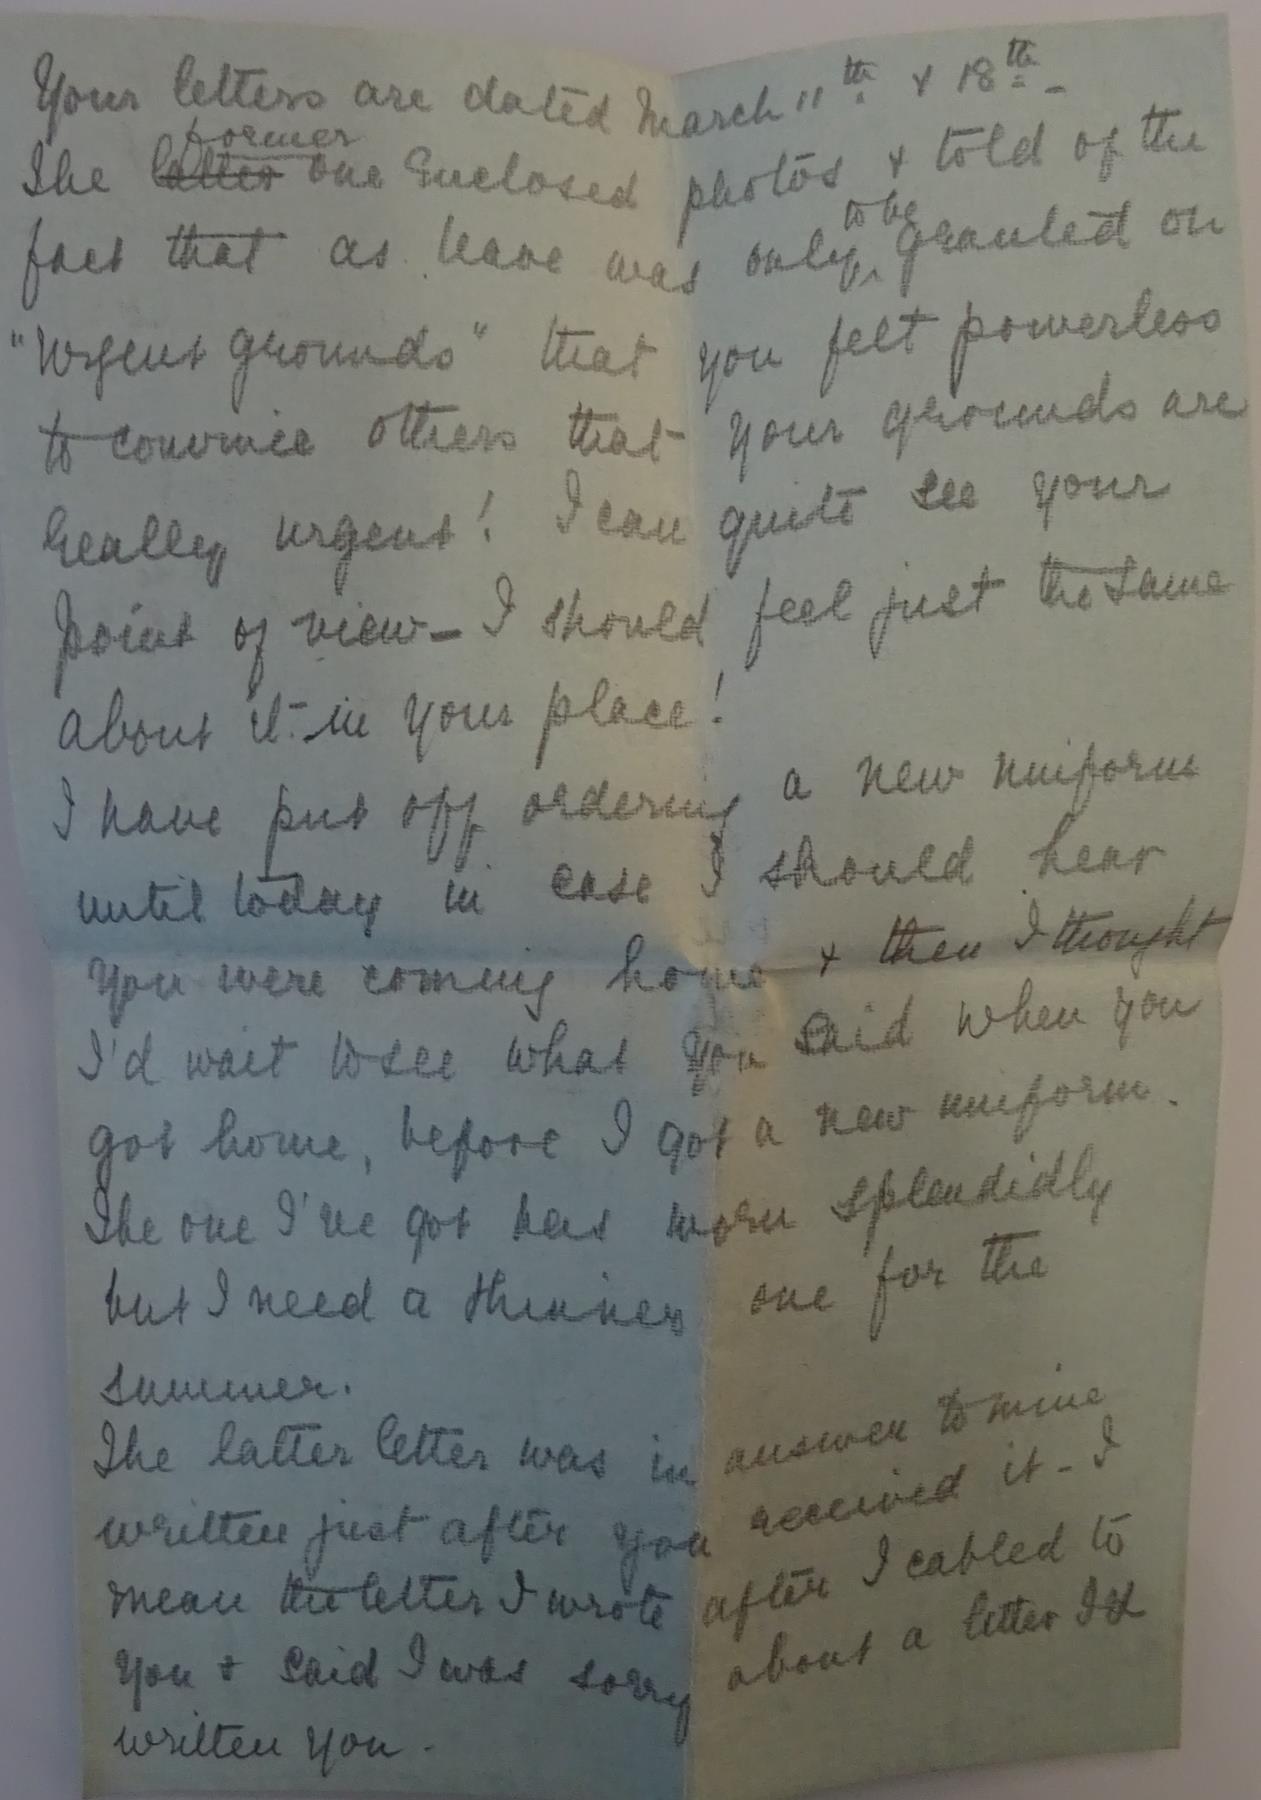 Your letters are dated March 11th & 18th -
The latter former one enclosed photos & told of the
fact that as leave was only to be granted on
"Urgent grounds" that you felt powerless
to convince others that your grounds are
really urgent! I can quite see your
point of view - I should feel just the same
about it - in your place!
I have put off ordering a new uniform
until today in case I should hear
you were coming home & then I thought
I'd wait to see what you said when you
got home, before I got a new uniform.
The one I've got has worn splendidly
but I need a thinner one for the
summer.
The latter letter was in answer to mine
written just after you received it - I
mean the letter I wrote after I cabled to
you & said I was sorry about a letter I'd
written you.